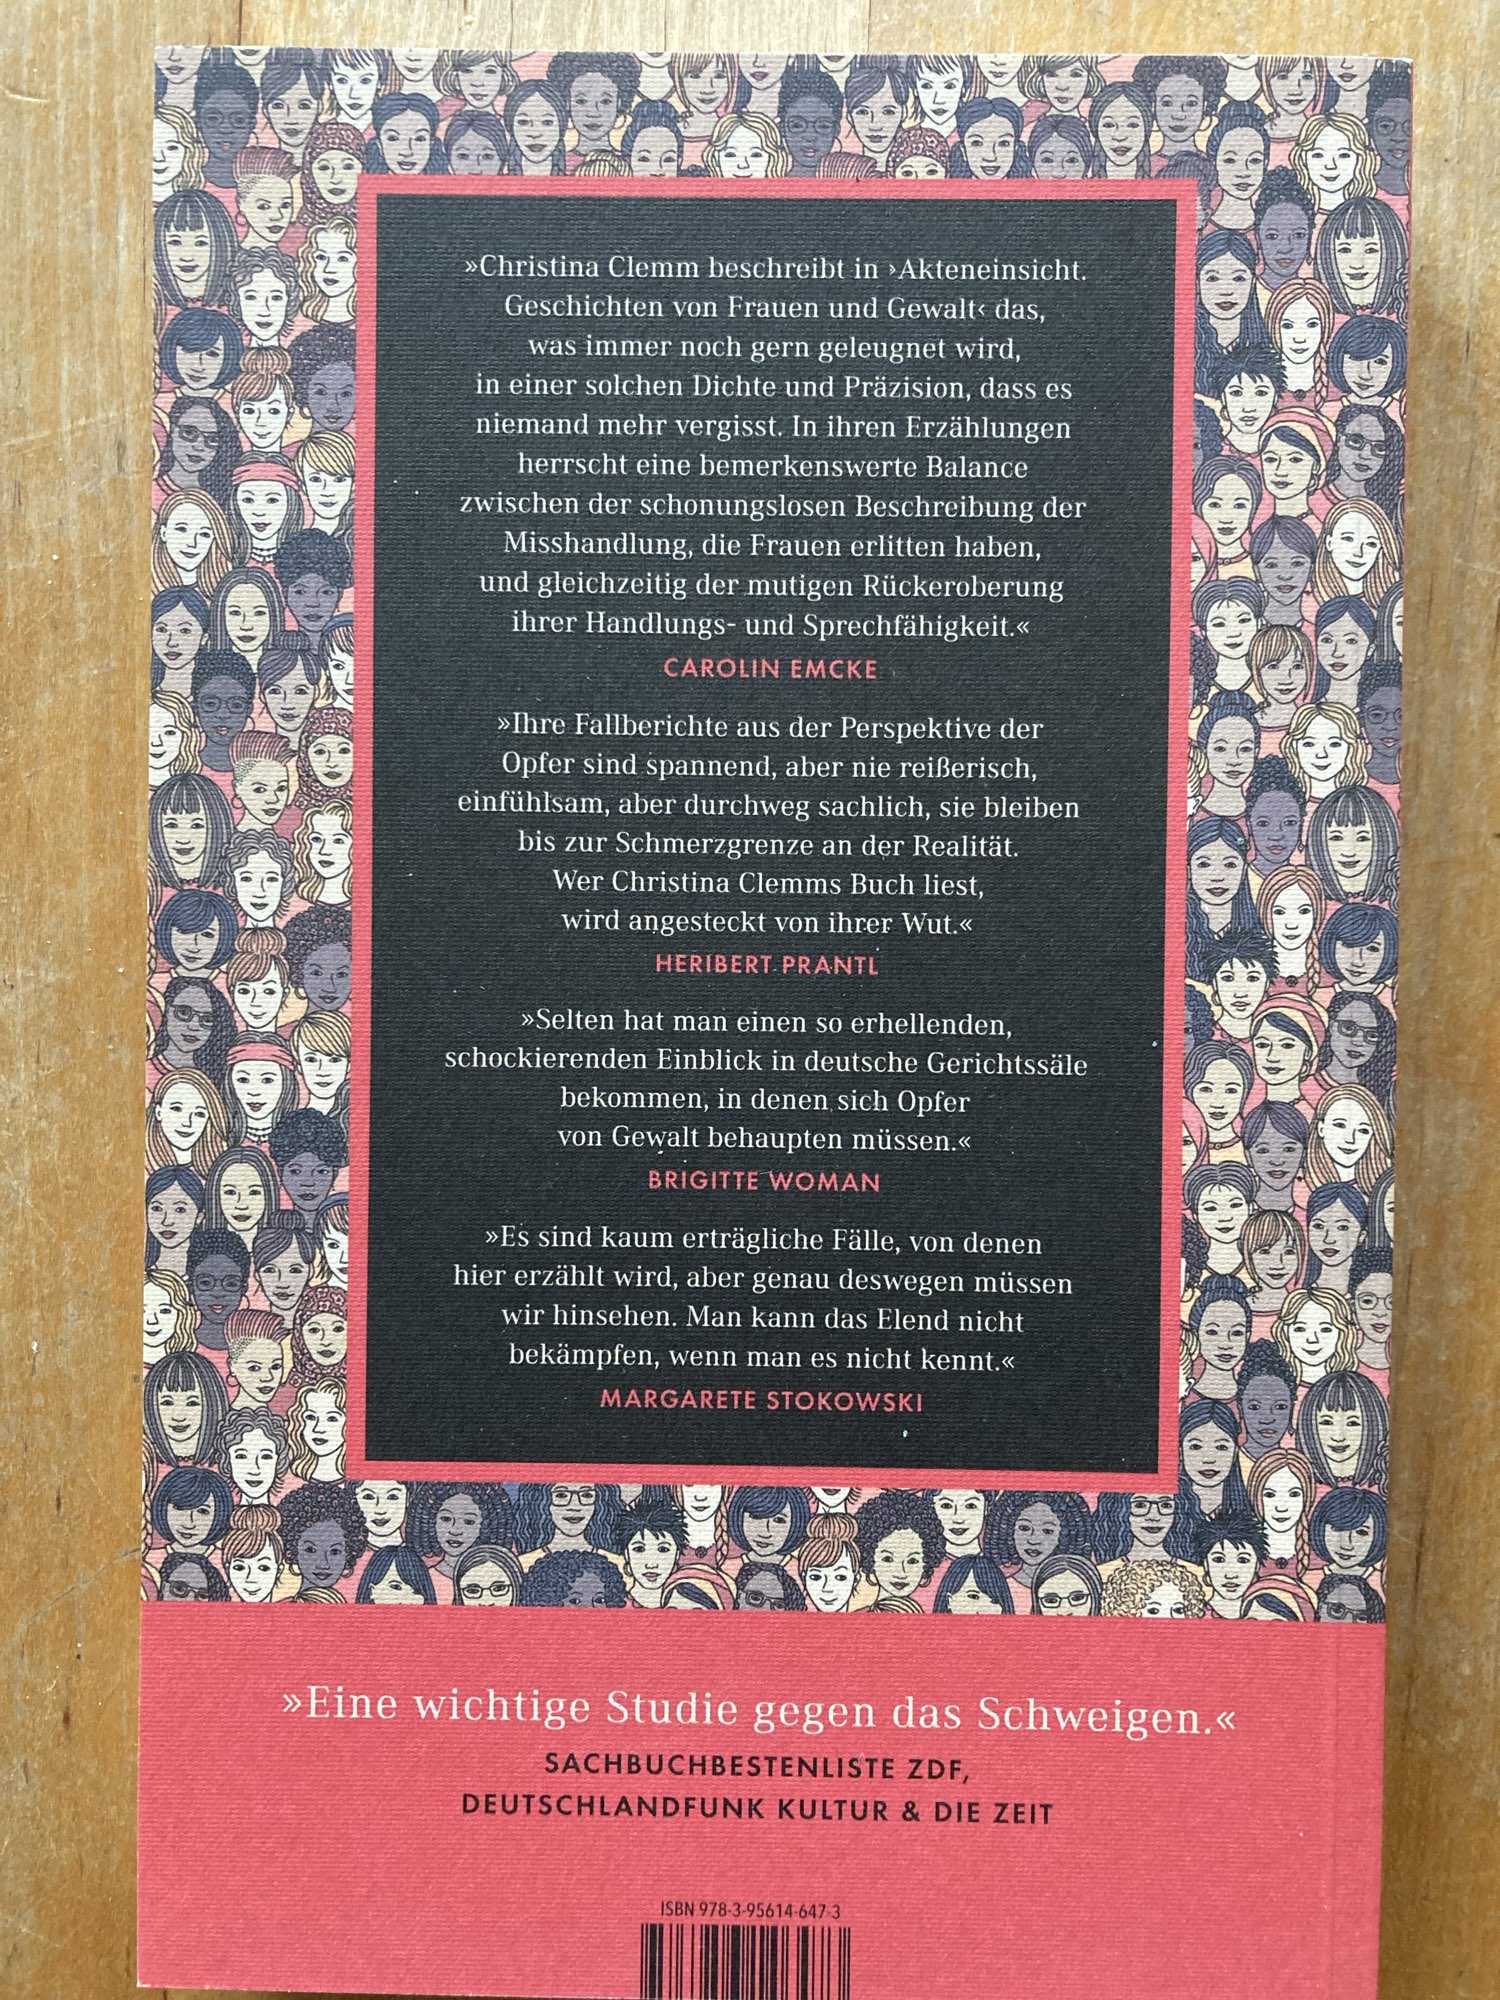 »Christina Clemm beschreibt in ›Akteneinsicht.
Geschichten von Frauen und Gewalt‹ das,
was immer noch gern geleugnet wird,
in einer solchen Dichte und Präzision, dass es
niemand mehr vergisst. In ihren Erzählungen
herrscht eine bemerkenswerte Balance
zwischen der schonungslosen Beschreibung der
Misshandlung, die Frauen erlitten haben,
und gleichzeitig der mutigen Rückeroberung
ihrer Handlungs- und Sprechfähigkeit.«
CAROLIN EMCKE
»Ihre Fallberichte aus der Perspektive der
Opfer sind spannend, aber nie reißerisch,
einfühlsam, aber durchweg sachlich, sie bleiben
bis zur Schmerzgrenze an der Realität.
Wer Christina Clemms Buch liest,
wird angesteckt von ihrer Wut.«
HERIBERT PRANTL
»Selten hat man einen so erhellenden,
schockierenden Einblick in deutsche Gerichtssäle
bekommen, in denen sich Opfer
von Gewalt behaupten müssen.«
BRIGITTE WOMAN
»Es sind kaum erträgliche Fälle, von denen
hier erzählt wird, aber genau deswegen müssen
wir hinsehen. Man kann das Elend nicht
bekämpfen, wenn man es nicht kennt.«
MARGARETE STOKOWSKI
»Eine wichtige Studie gegen das Schweigen.«
SACHBUCHBESTENLISTE ZDF,
DEUTSCHLANDFUNK KULTUR & DIE ZEIT
ISBN 978-3-95614-647-3